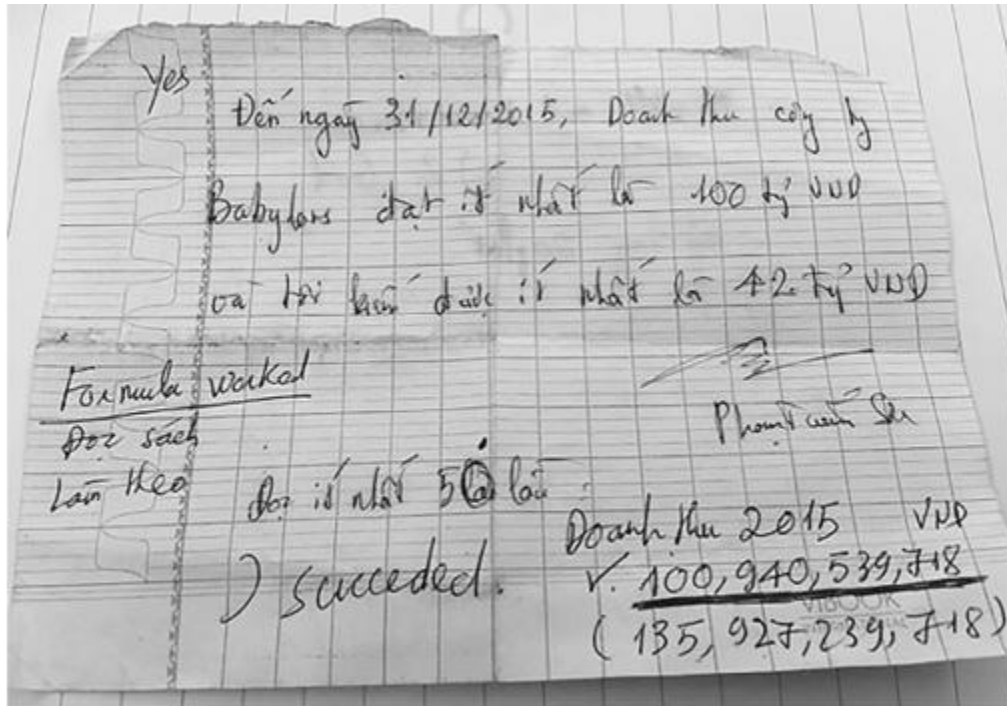 Yes
Đến ngày 31/12/2015, Doanh thu công ty
Babylons đạt ít nhất là 100 tỷ VND
và tôi kiếm được ít nhất là 42 tỷ VND
Formula worked
Đọc sách
Làm theo
Phạm Tuấn
Đọc ít nhất 50 lần
) succeeded.
Doanh thu 2015 VND
✓. 100,940,539,718
VIBOOK
(135,927,239,718)